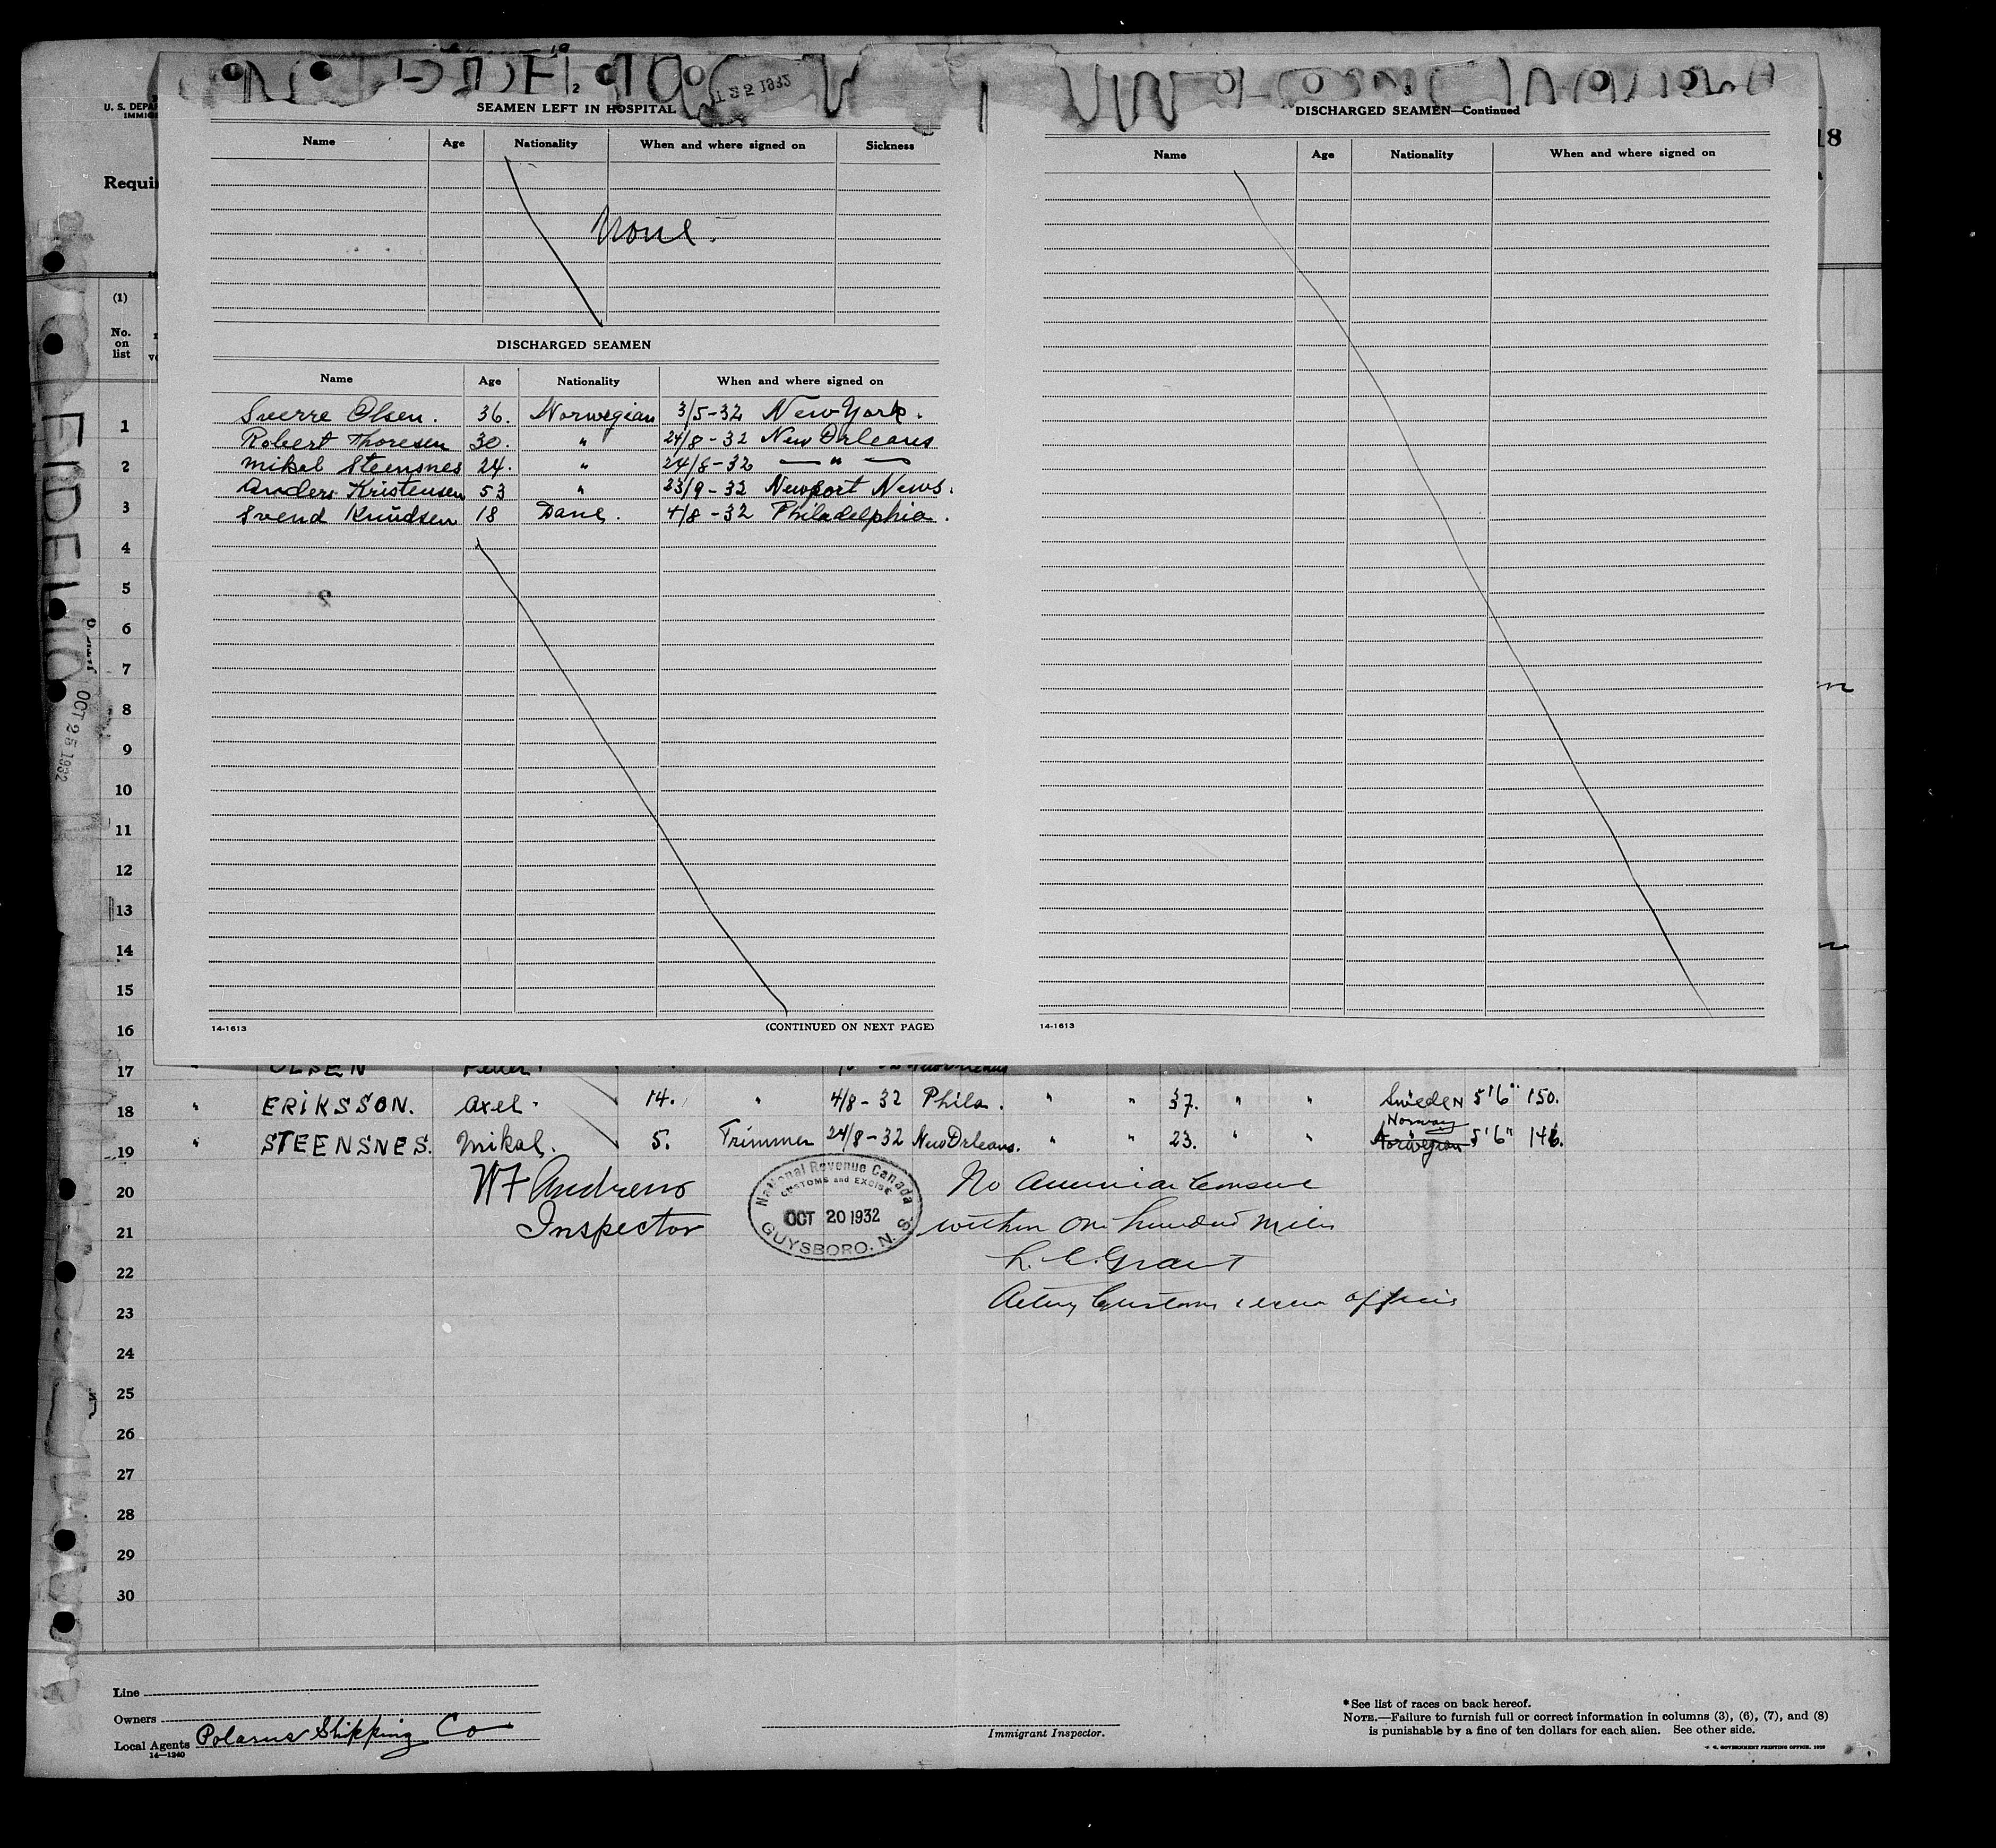 U. S. DEPA
IMMIG
Requi
18
T 25 1932
SEAMEN LEFT IN HOSPITAL
Name Age Nationality When and where signed on Sickness
None.
DISCHARGED SEAMEN
Name Age Nationality When and where signed on
Sverre Olsen. 36. Norwegian 3/5-32 New York.
Robert Thoresen 30. " 24/8-32 New Orleans
Mikal Steensnes 24. " 24/8-32 — " —
Anders Kristensen 53 " 23/9-32 Newport News.
Svend Knudsen 18 Dane. 4/8-32 Philadelphia.
14-1613 (CONTINUED ON NEXT PAGE)
DISCHARGED SEAMEN—Continued
Name Age Nationality When and where signed on
14-1613
EIDELIO
OCT 25 1932
(1)
No. on list
1
2
3
4
5
6
7
8
9
10
11
12
13
14
15
16
17 OLSEN
18 " ERIKSSON. Axel. 14. " 4/8-32 Phila. " " 37. " " Sweden 5'6" 150.
19 " STEENSNES. Mikal. 5. Trimmer 24/8-32 New Orleans. " " 23. " " Norwegian Norway 5'6" 146.
20 WF Andrews No American Consul
21 Inspector within one hundred miles
22
L. C. Grant
23 Acting Customs Excise Officer
National Revenue Canada
CUSTOMS and EXCISE
OCT 20 1932
GUYSBORO, N. S.
24
25
26
27
28
29
30
Line
Owners
Local Agents Polarus Shipping Co
14—1240
Immigrant Inspector.
*See list of races on back hereof.
NOTE.—Failure to furnish full or correct information in columns (3), (6), (7), and (8)
is punishable by a fine of ten dollars for each alien. See other side.
U. S. GOVERNMENT PRINTING OFFICE